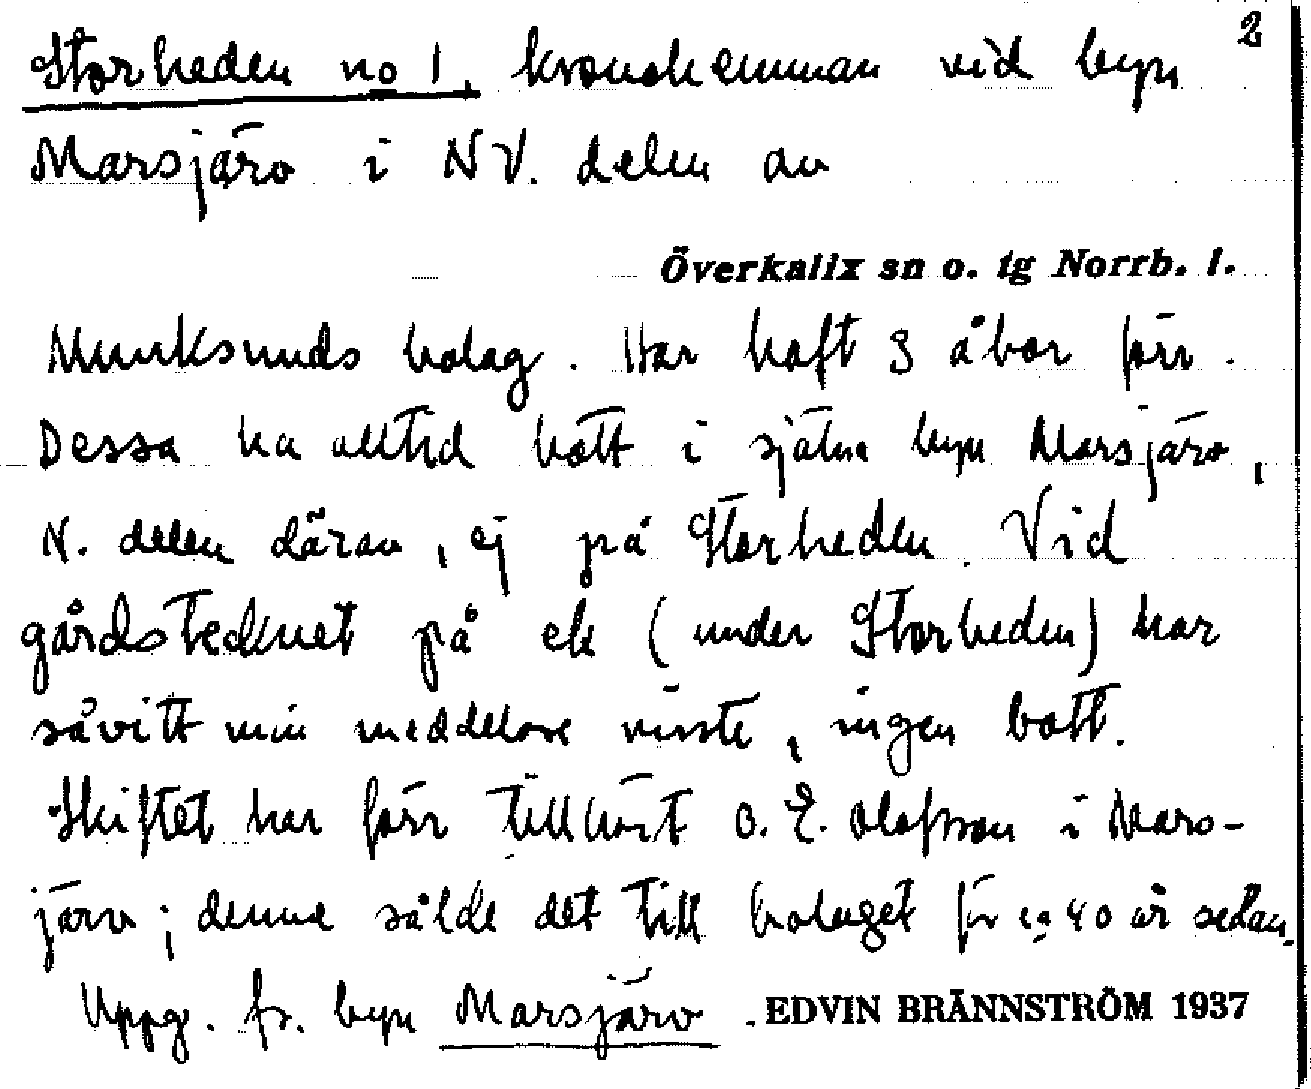 2
Storheden no 1, kronohemman vid byn
Marsjärv i NV. delen av
Överkalix sn o. tg Norrb. l.
Munksunds bolag. Har haft 3 åbor förr.
Dessa ha alltid bott i själva byn Marsjärv,
N. delen därav, ej på Storheden. Vid
gårdstecknet på ek (under Storheden) har
såvitt min meddelare visste, ingen bott.
Skiftet har förr tillhört O. E. Olofsson i Mars-
järv; denne sålde det till bolaget för ca 40 år sedan.
Uppg. fr. byn Marsjärv. EDVIN BRÄNNSTRÖM 1937